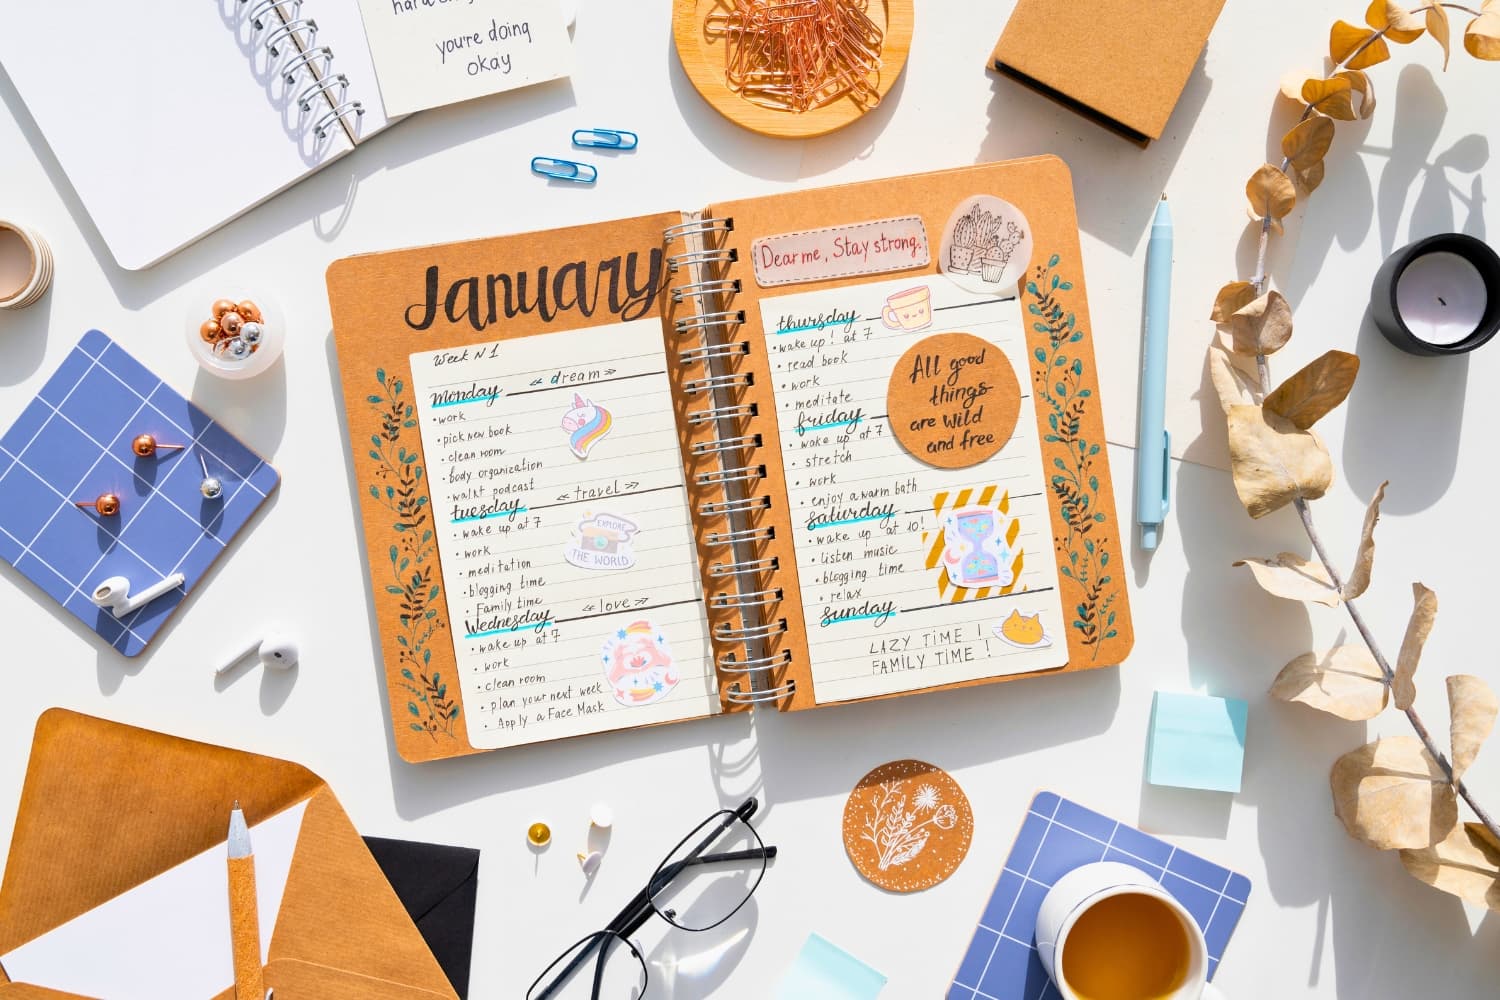 you're doing
okay
January
Week N 1
monday
« dream »
• work
• pick new book
• clean room
• body organization
• walk + podcast
tuesday
« travel »
• wake up at 7
• work
• meditation
• blogging time
• Family time
EXPLORE
THE WORLD
Wednesday
« love »
• wake up at 7
• work
• clean room
• plan your next week
• Apply a Face Mask
Dear me, Stay strong.
thursday
• wake up! at 7
• read book
• work
• meditate
All good
things
are wild
and free
friday
• wake up at 7
• stretch
• work
• enjoy a warm bath
saturday
• wake up at 10!
• listen music
• blogging time
• relax
sunday
LAZY TIME !
FAMILY TIME !